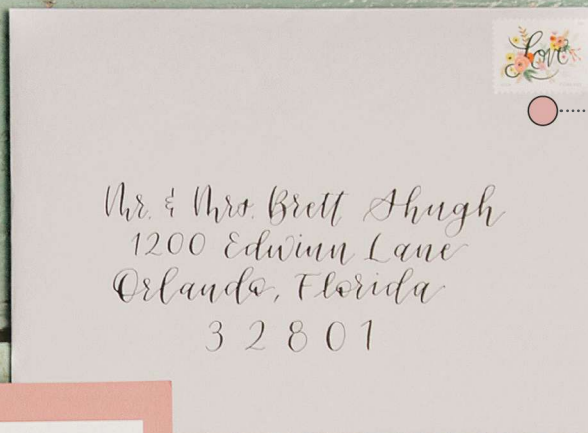 Love
Mr. & Mrs. Brett Shugh
1200 Edwinn Lane
Orlando, Florida
32801